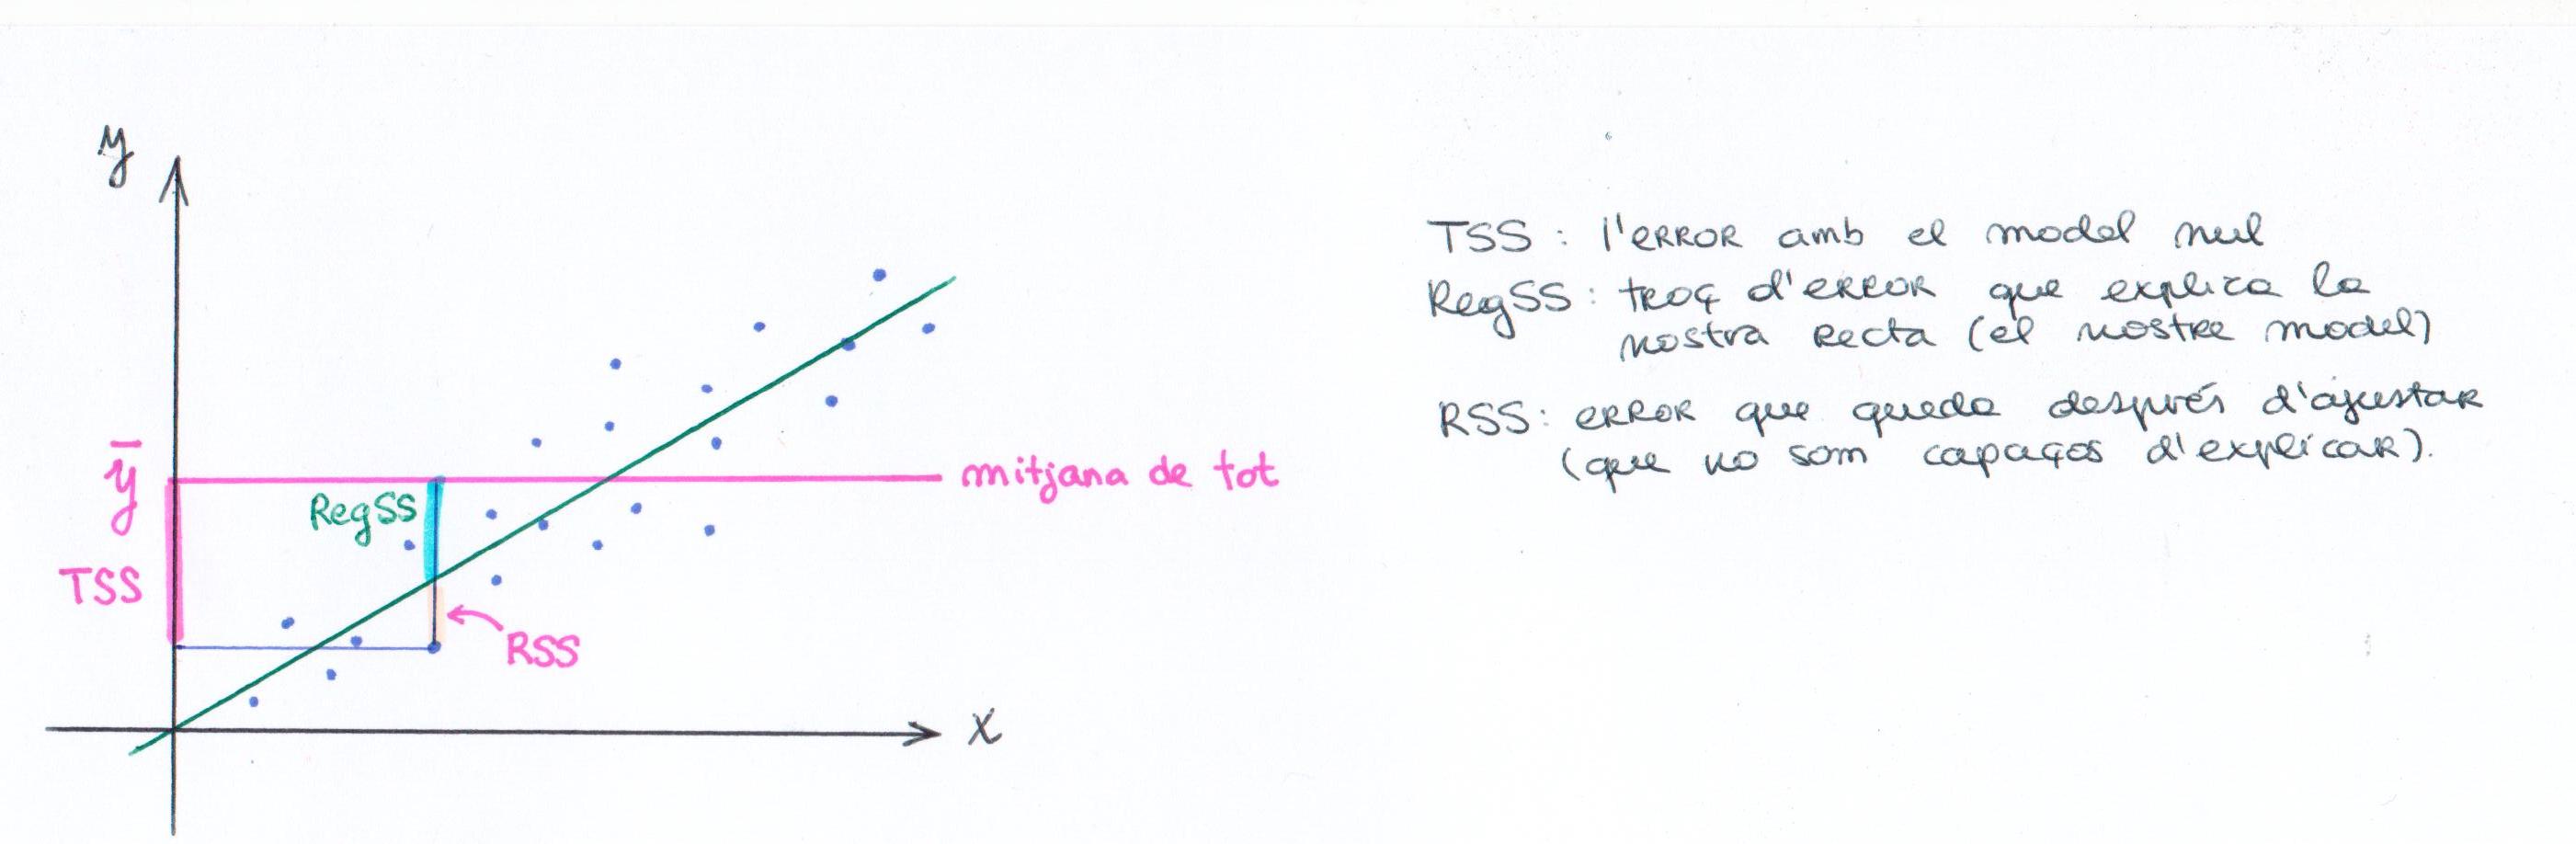 y
ȳ
mitjana de tot
RegSS
TSS
RSS
x
TSS: l'error amb el model nul
RegSS: troç d'error que explica la
nostra recta (el nostre model)
RSS: error que queda després d'ajustar
(que no som capaços d'explicar).